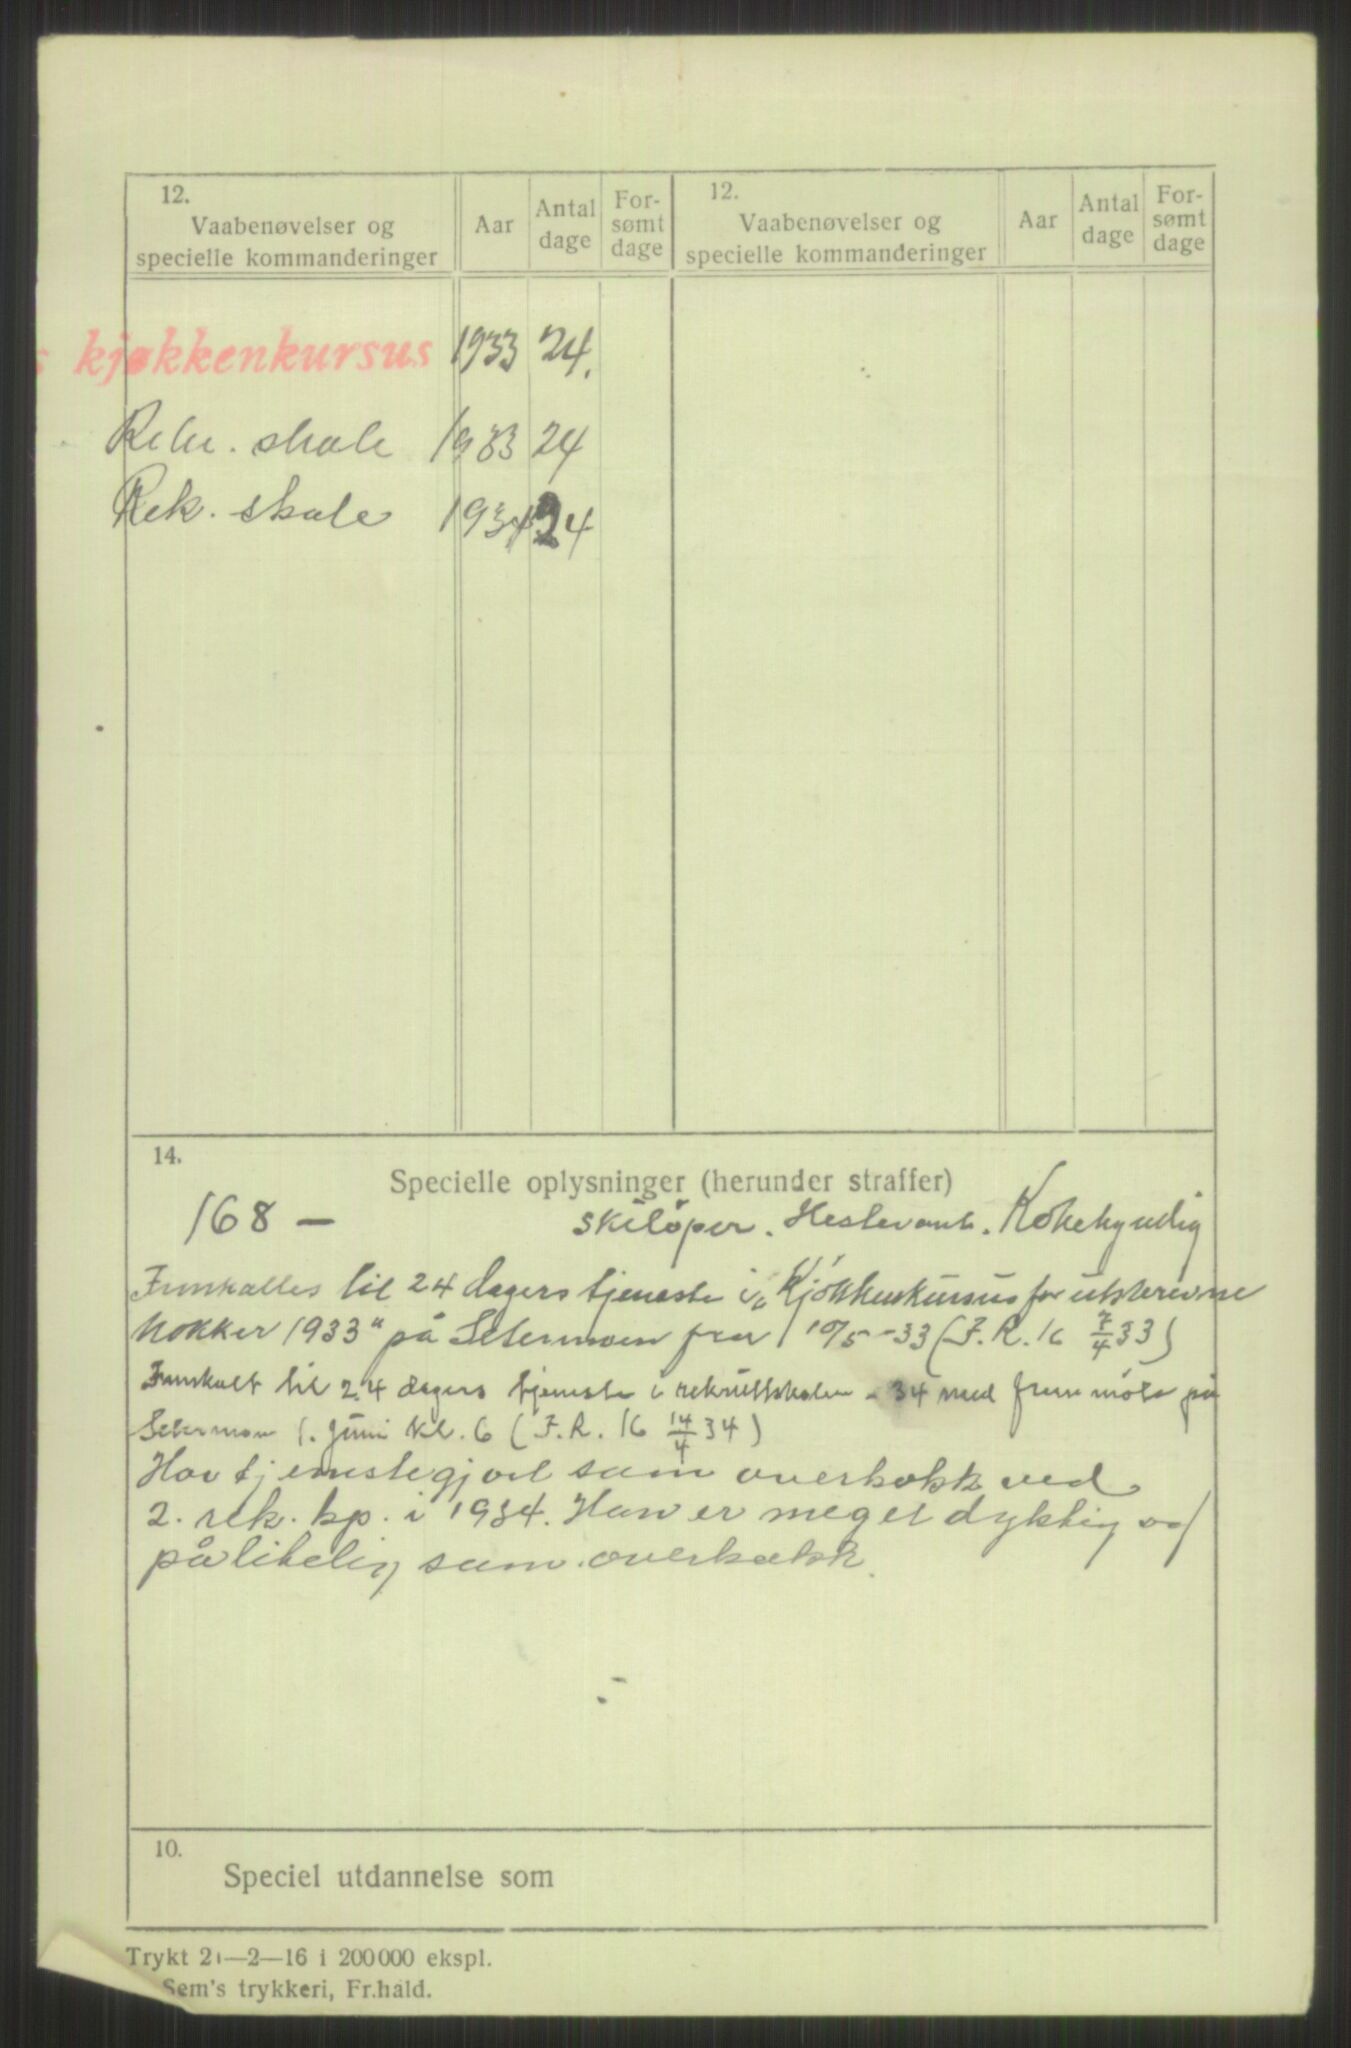 12.
Vaabenøvelser og
specielle kommanderinger
Aar
Antal
dage
For-
sømt
dage
12.
Vaabenøvelser og
specielle kommanderinger
Aar
Antal
dage
For-
sømt
dage
s kjøkkenkursus 1933 24.
Rekr. skole 1933 24
Rek. skole 1934 24
14.
Specielle oplysninger (herunder straffer)
168 — Skiløper. Hestevant. Kokekyndig
Innkalles til 24 dagers tjeneste i „Kjøkkenkursus for utskrevne
kokker 1933" på Setermoen fra 10/5-33 (F.R. 16 7/4 33)
Innkalt til 24 dagers tjeneste i rekruttskolen - 34 med fremmøte på
Setermoen 1. juni kl. 6 (F.R. 16 14/4 34)
Har tjenestegjort som overkokk ved
2. rek. kp. i 1934. Han er meget dyktig og
pålitelig som overkokk.
10.
Speciel utdannelse som
Trykt 21—2—16 i 200 000 ekspl.
Sem's trykkeri, Fr.hald.